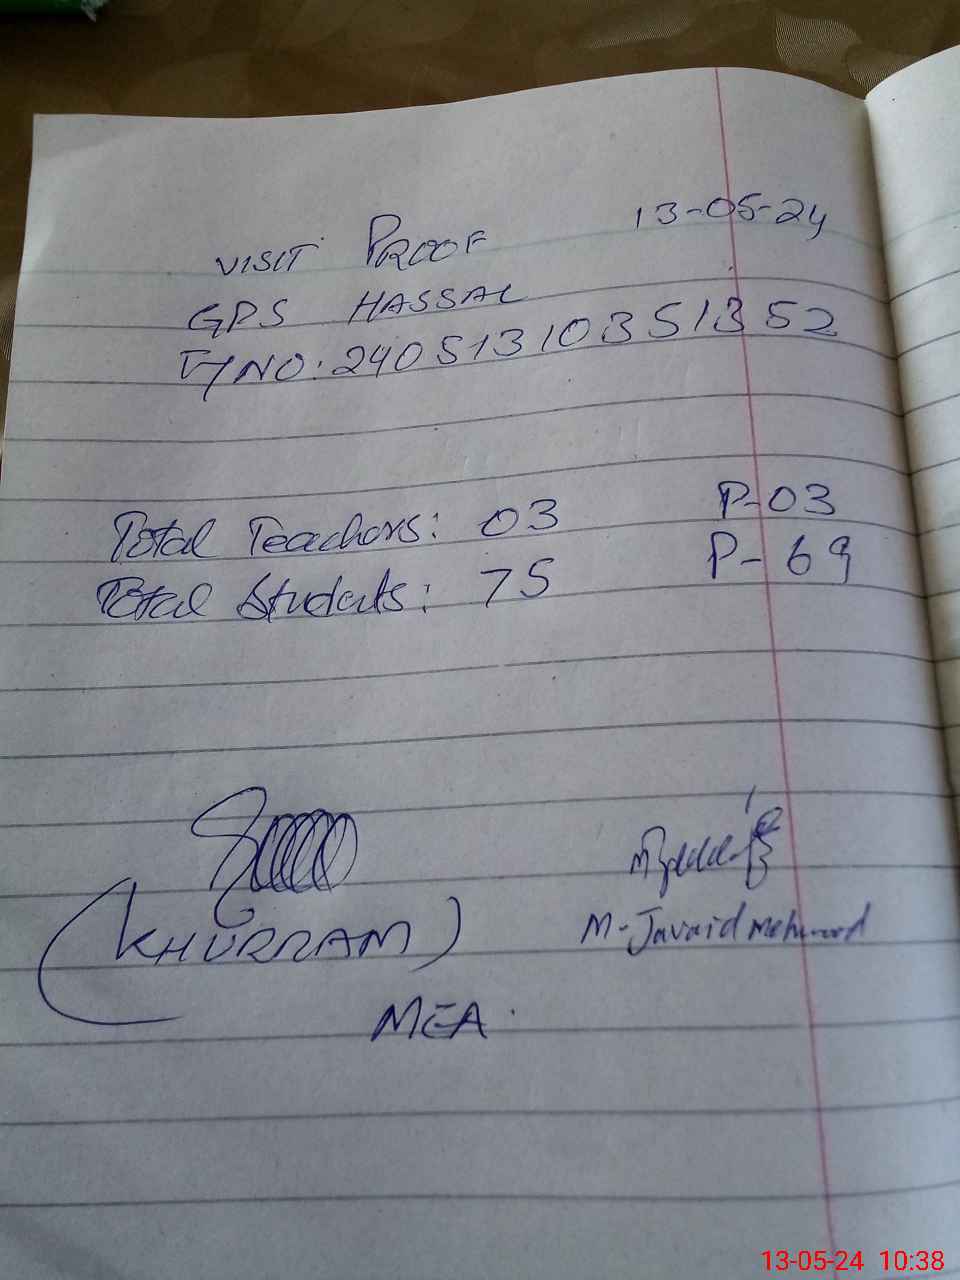 VISIT PROOF 13-05-24
GPS HASSAL
T/NO: 24051310351352
Total Teachers: 03 P-03
Total Students: 75 P-69
(KHURRAM) M. Javaid Mehmood
MEA.
13-05-24 10:38